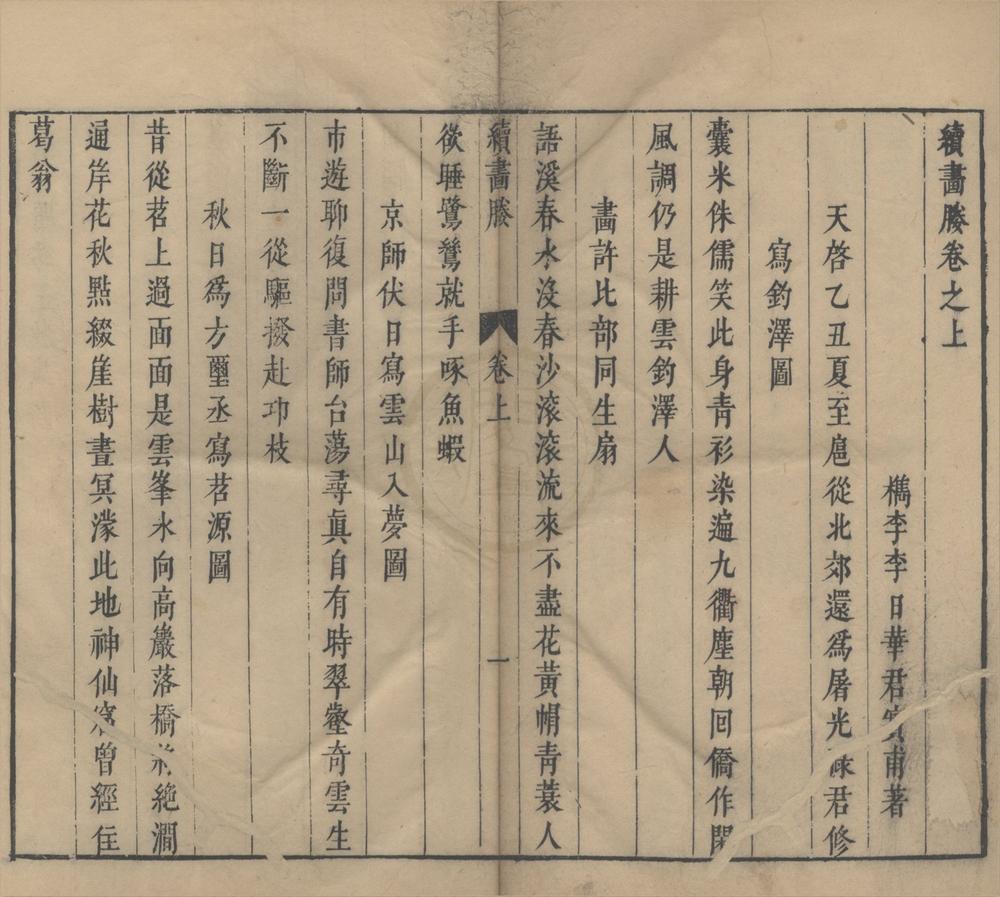 續畫媵卷之上
檇李李日華君實甫著
天啓乙丑夏至扈從北郊還爲屠光祿君修
寫釣澤圖
囊米侏儒笑此身青衫染遍九衢塵朝回僑作閑
風調仍是耕雲釣澤人
畫許比部同生扇
語溪春水沒春沙滚滚流來不盡花黃帽青蓑人
續畫媵
卷上
一
欲睡鷺鶿就手啄魚蝦
京師伏日寫雲山入夢圖
市遊聊復問書師台蕩尋眞自有時翠壑奇雲生
不斷一從驅撥赴邛枝
秋日爲方璽丞寫苕源圖
昔從苕上過面面是雲峯水向高巖落橋將絶澗
通岸花秋點綴崖樹晝冥濛此地神仙窟曾經住
葛翁